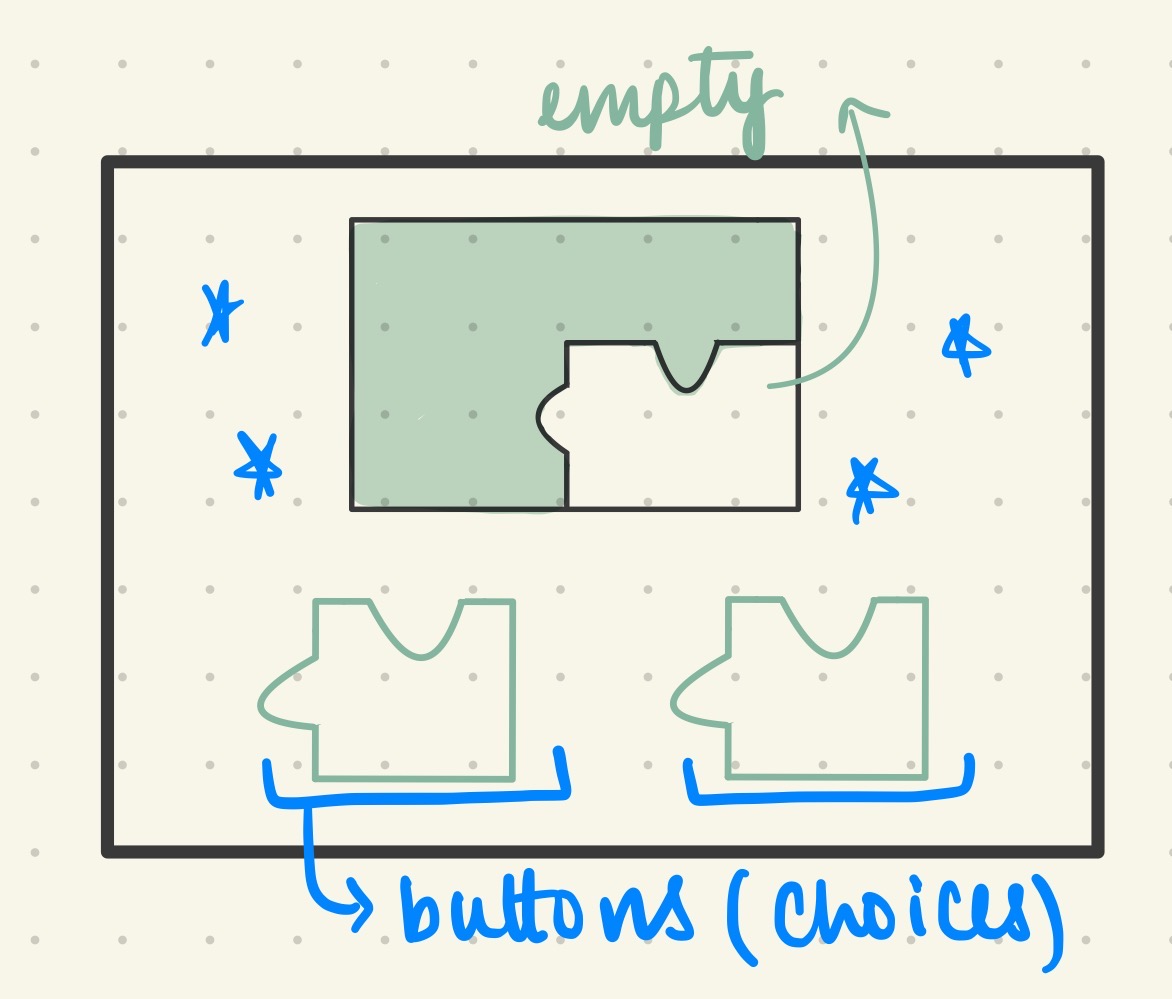 empty
buttons (choices)